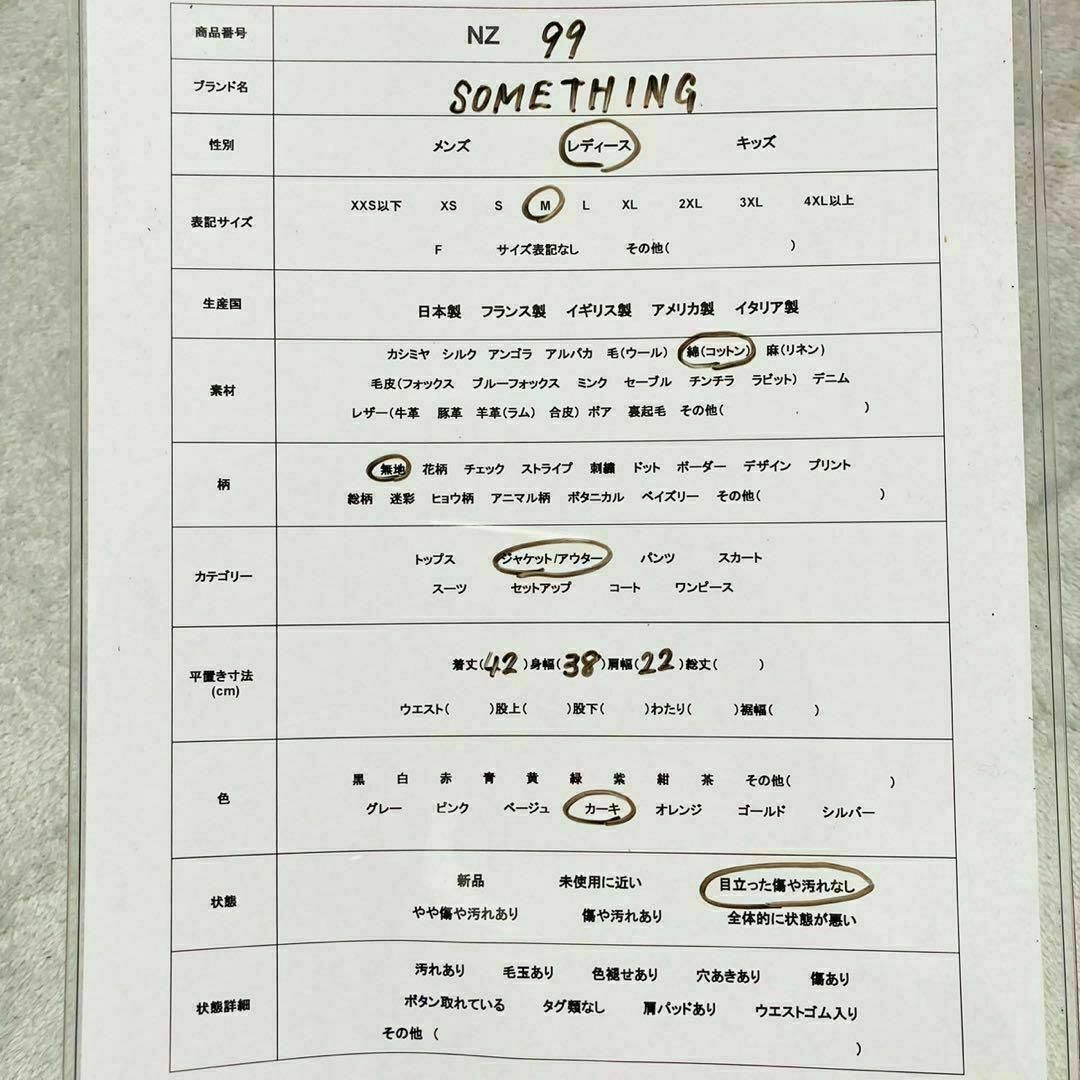 商品番号 NZ 99
ブランド名 SOMETHING
性別 メンズ レディース キッズ
表記サイズ
XXS以下 XS S M L XL 2XL 3XL 4XL以上
F サイズ表記なし その他( )
生産国 日本製 フランス製 イギリス製 アメリカ製 イタリア製
素材
カシミヤ シルク アンゴラ アルパカ 毛(ウール) 綿(コットン) 麻(リネン)
毛皮(フォックス ブルーフォックス ミンク セーブル チンチラ ラビット) デニム
レザー(牛革 豚革 羊革(ラム) 合皮) ボア 裏起毛 その他( )
柄
無地 花柄 チェック ストライプ 刺繍 ドット ボーダー デザイン プリント
総柄 迷彩 ヒョウ柄 アニマル柄 ボタニカル ペイズリー その他( )
カテゴリー
トップス ジャケット/アウター パンツ スカート
スーツ セットアップ コート ワンピース
平置き寸法
(cm)
着丈(42)身幅(38)肩幅(22)総丈( )
ウエスト( )股上( )股下( )わたり( )裾幅( )
色
黒 白 赤 青 黄 緑 紫 紺 茶 その他( )
グレー ピンク ベージュ カーキ オレンジ ゴールド シルバー
状態
新品 未使用に近い 目立った傷や汚れなし
やや傷や汚れあり 傷や汚れあり 全体的に状態が悪い
状態詳細
汚れあり 毛玉あり 色褪せあり 穴あきあり 傷あり
ボタン取れている タグ類なし 肩パッドあり ウエストゴム入り
その他 ( )